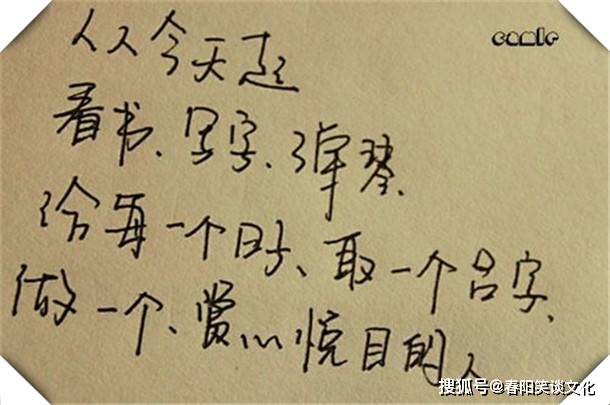 从今天起
看书、写字、弹琴、
给每一个日子、取一个名字、
做一个、赏心悦目的人
搜狐号@春阳笑谈文化